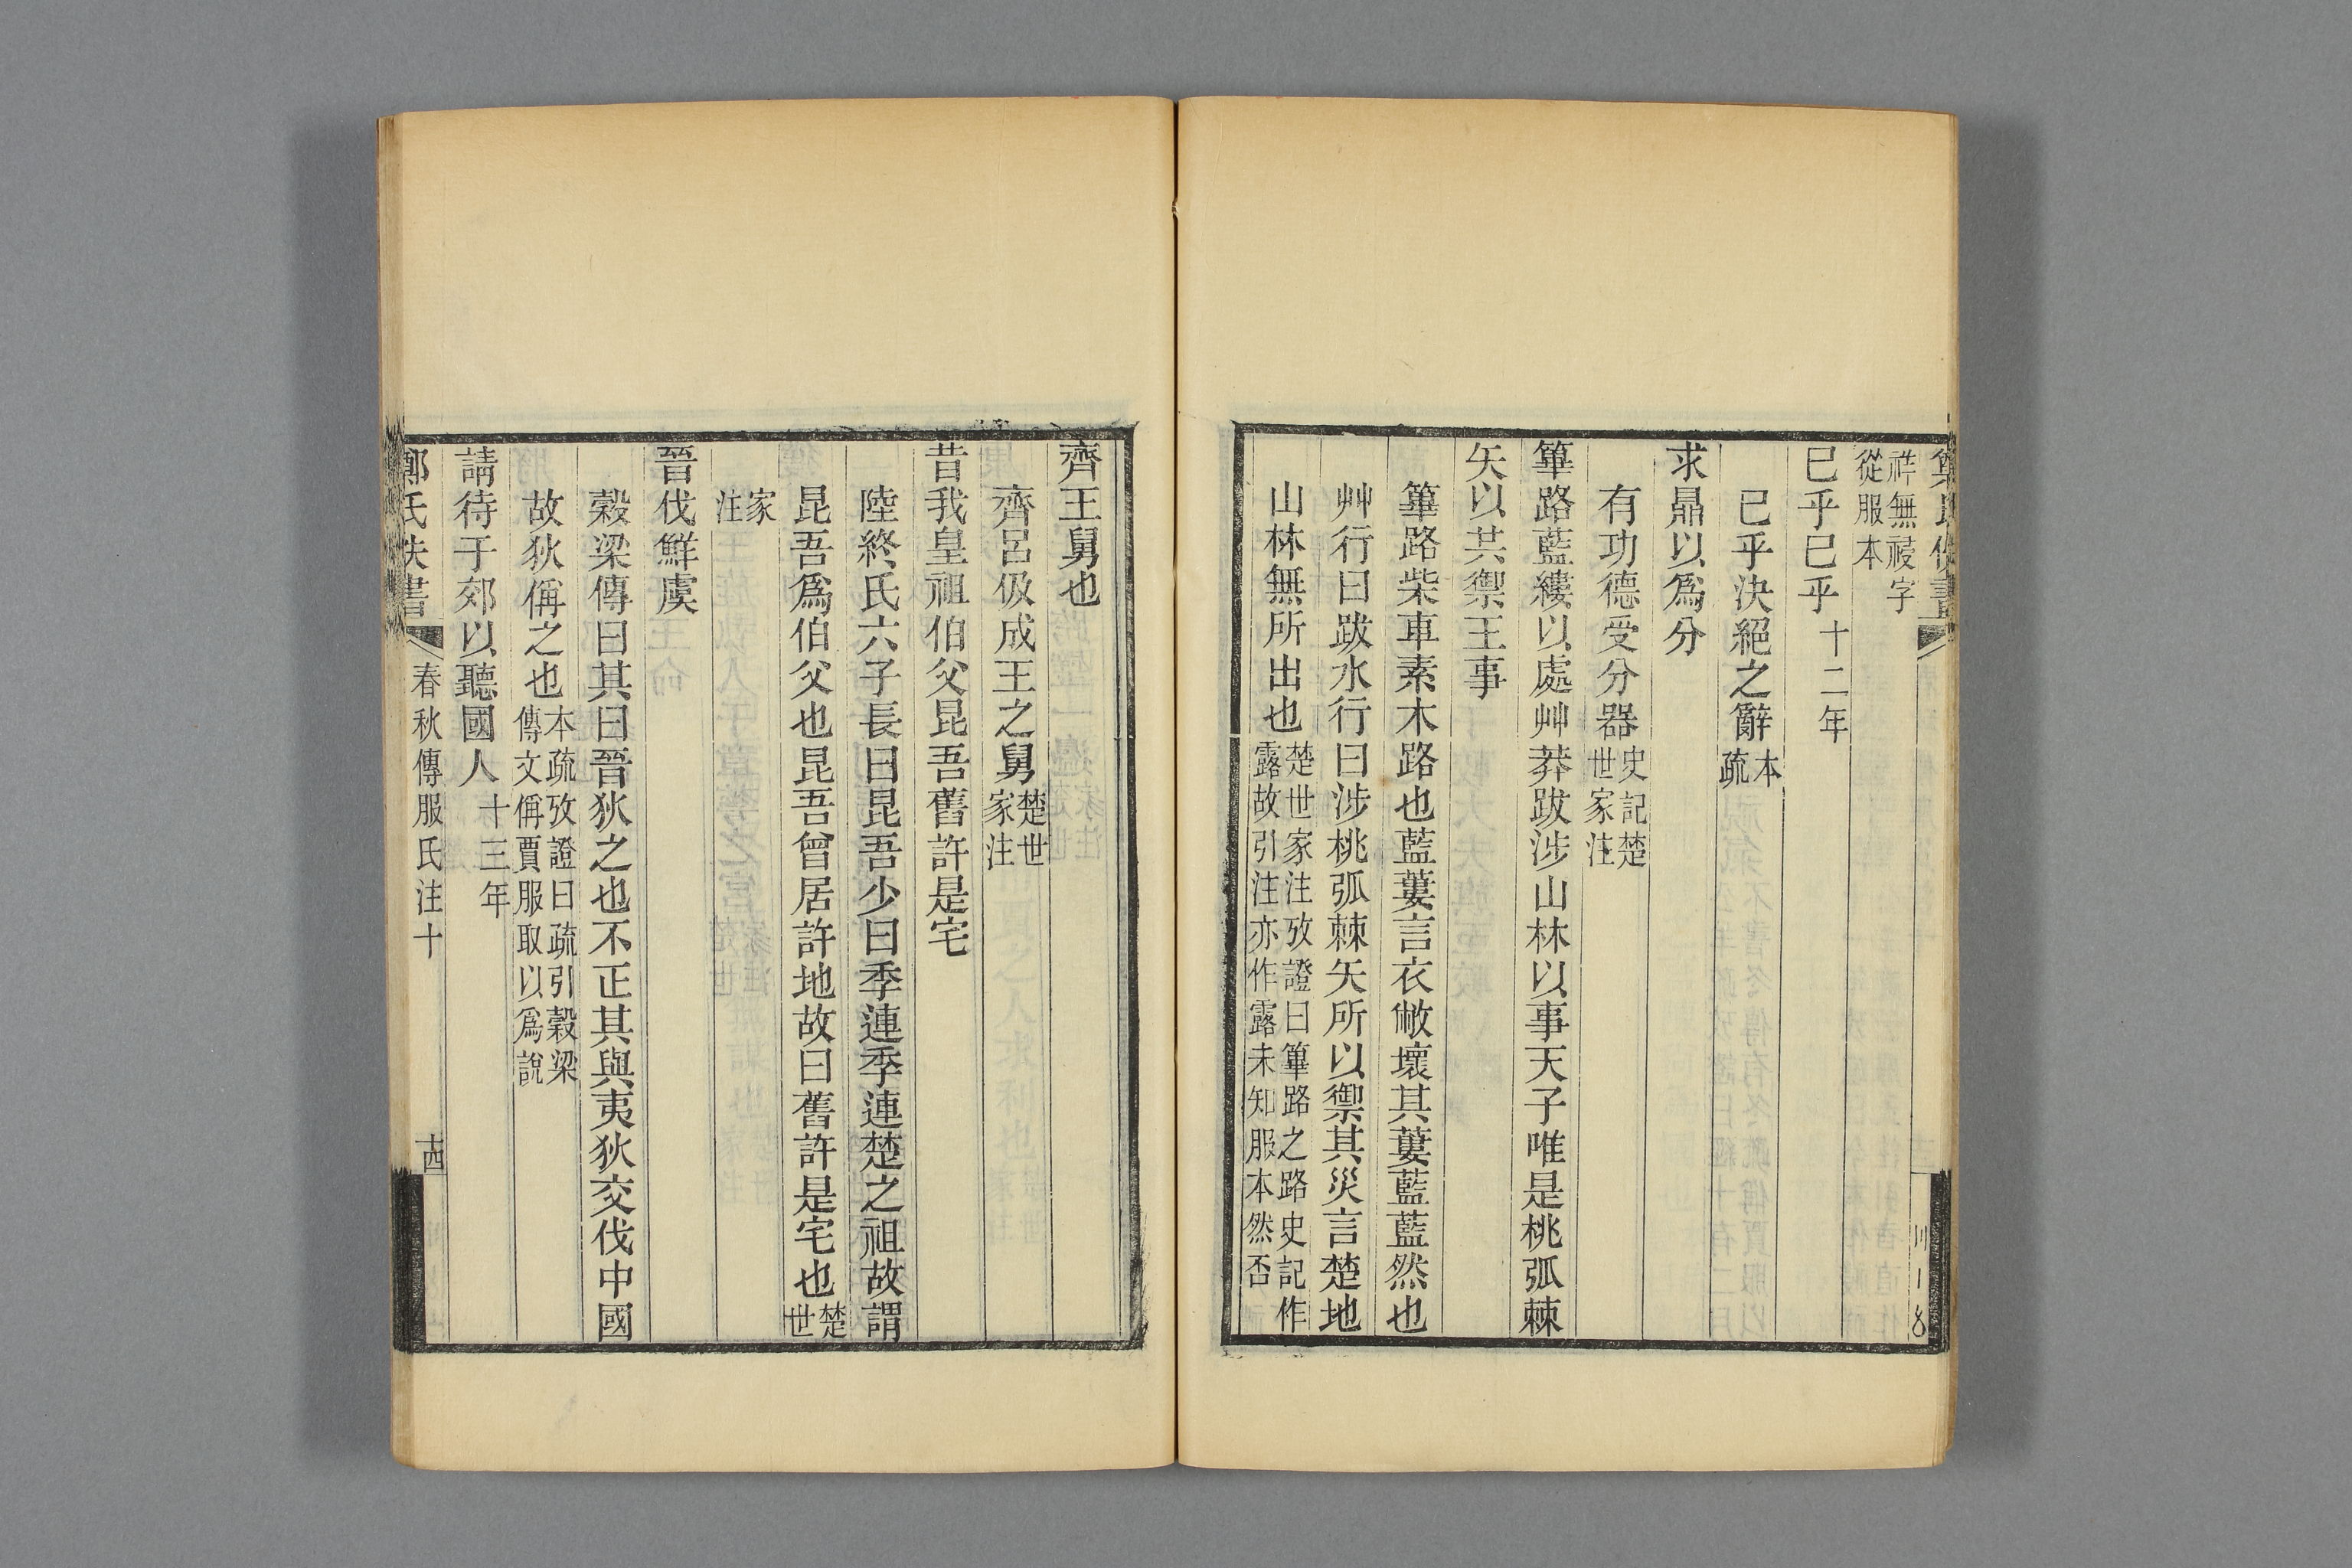 祥無祲字
從服本
已乎已乎十二年
已乎決絕之辭本疏
求鼎以爲分
有功德受分器史記楚世家注
篳路藍縷以處艸莽跋涉山林以事天子唯是桃弧棘
矢以共禦王事
篳路柴車素木路也藍蔞言衣敝壞其蔞藍藍然也
艸行曰跋水行曰涉桃弧棘矢所以禦其災言楚地
山林無所出也楚世家注攷證曰篳路之路史記作
露故引注亦作露未知服本然否
齊王舅也
齊呂伋成王之舅楚世家注
昔我皇祖伯父昆吾舊許是宅
陸終氏六子長曰昆吾少曰季連季連楚之祖故謂
昆吾爲伯父也昆吾曾居許地故曰舊許是宅也楚世
家注
晉伐鮮虞
穀梁傳曰其曰晉狄之也不正其與夷狄交伐中國
故狄偁之也本疏攷證曰疏引穀梁
傳文偁賈服取以爲說
請待于郊以聽國人十三年
春秋傳服氏注十 十四